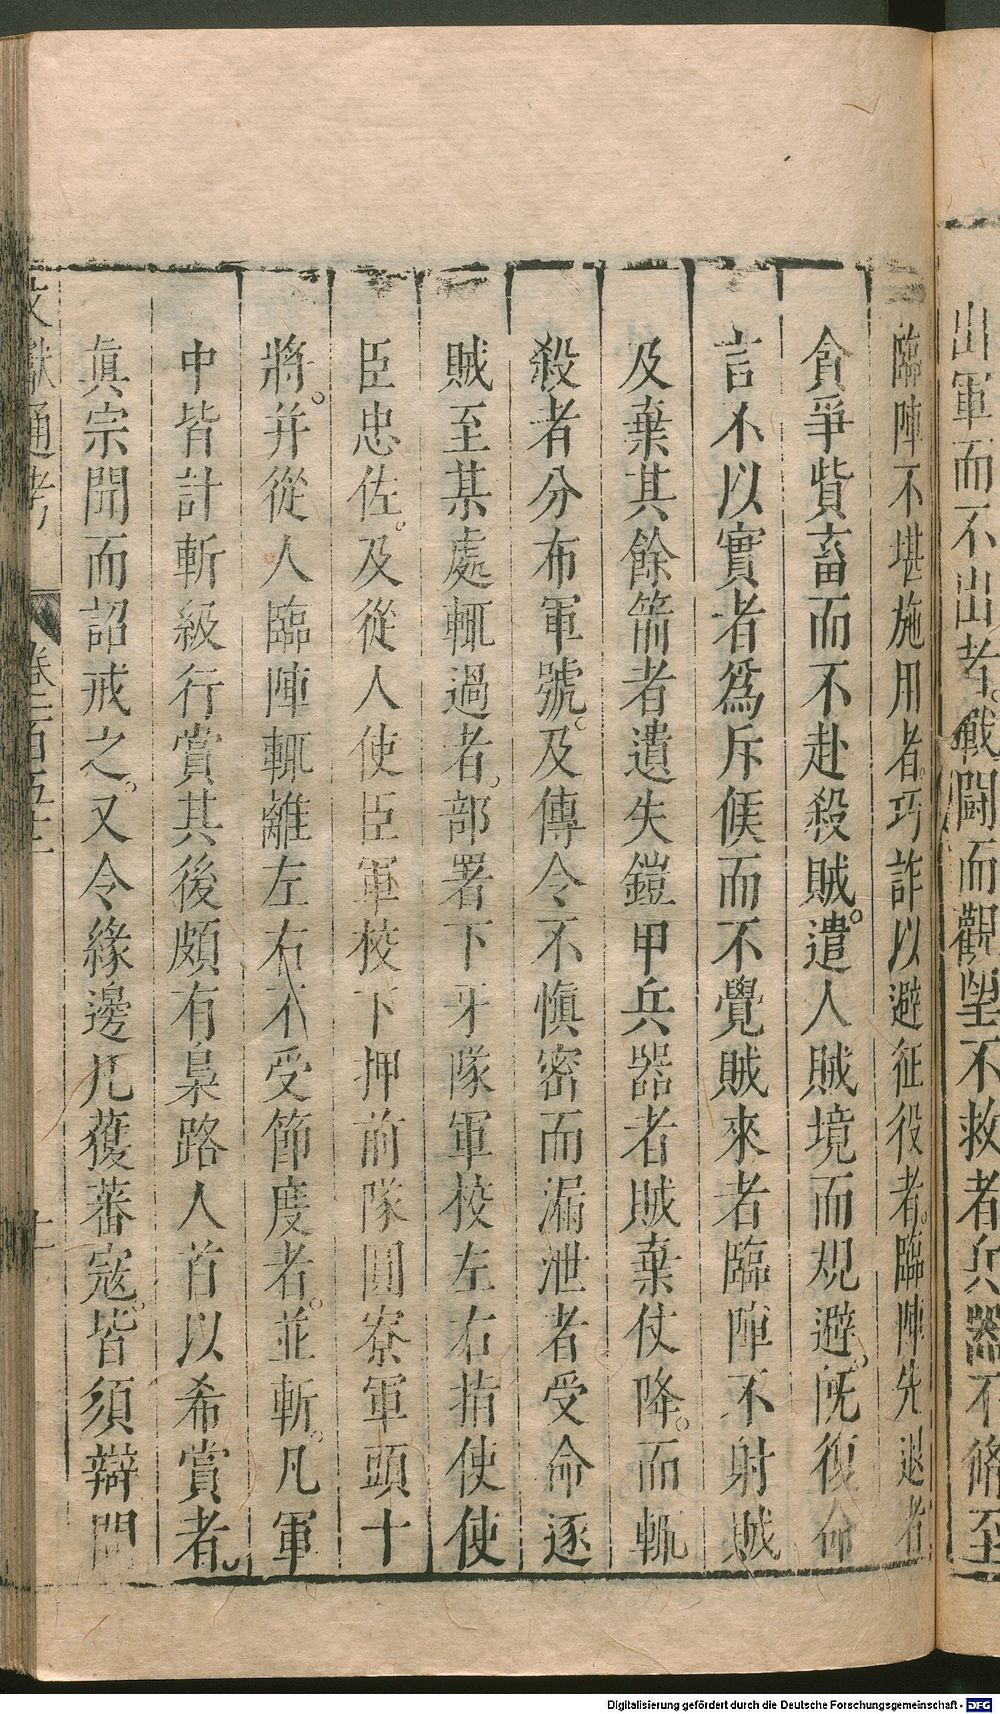 出軍而不出者。戰鬪而觀望不救者兵器不脩至
臨陣不堪施用者。巧詐以避征役者。臨陣先退者
貪爭貲畜而不赴殺賊。遣人賊境而規避。旣復命
言不以實者爲斥候而不覺賊來者臨陣不射賊
及棄其餘箭者遺失鎧甲兵器者賊棄仗降。而輒
殺者分布軍號。及傳令不愼密而漏泄者受命逐
賊至某處輒過者。部署下牙隊軍校左右指使使
臣忠佐。及從人使臣軍校下押前隊圓寮軍頭十
將。并從人臨陣輒離左右不受節度者。並斬。凡軍
中皆計斬級行賞其後頗有梟路人首以希賞者。
眞宗聞而詔戒之。又令緣邊凡蕧蕃寇。皆須辯問
文獻通考 卷一百五十二 十一
Digitalisierung gefördert durch die Deutsche Forschungsgemeinschaft - DFG